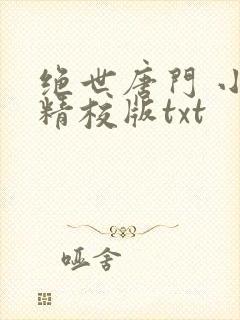 绝世唐門 小
精校版txt
哑舍